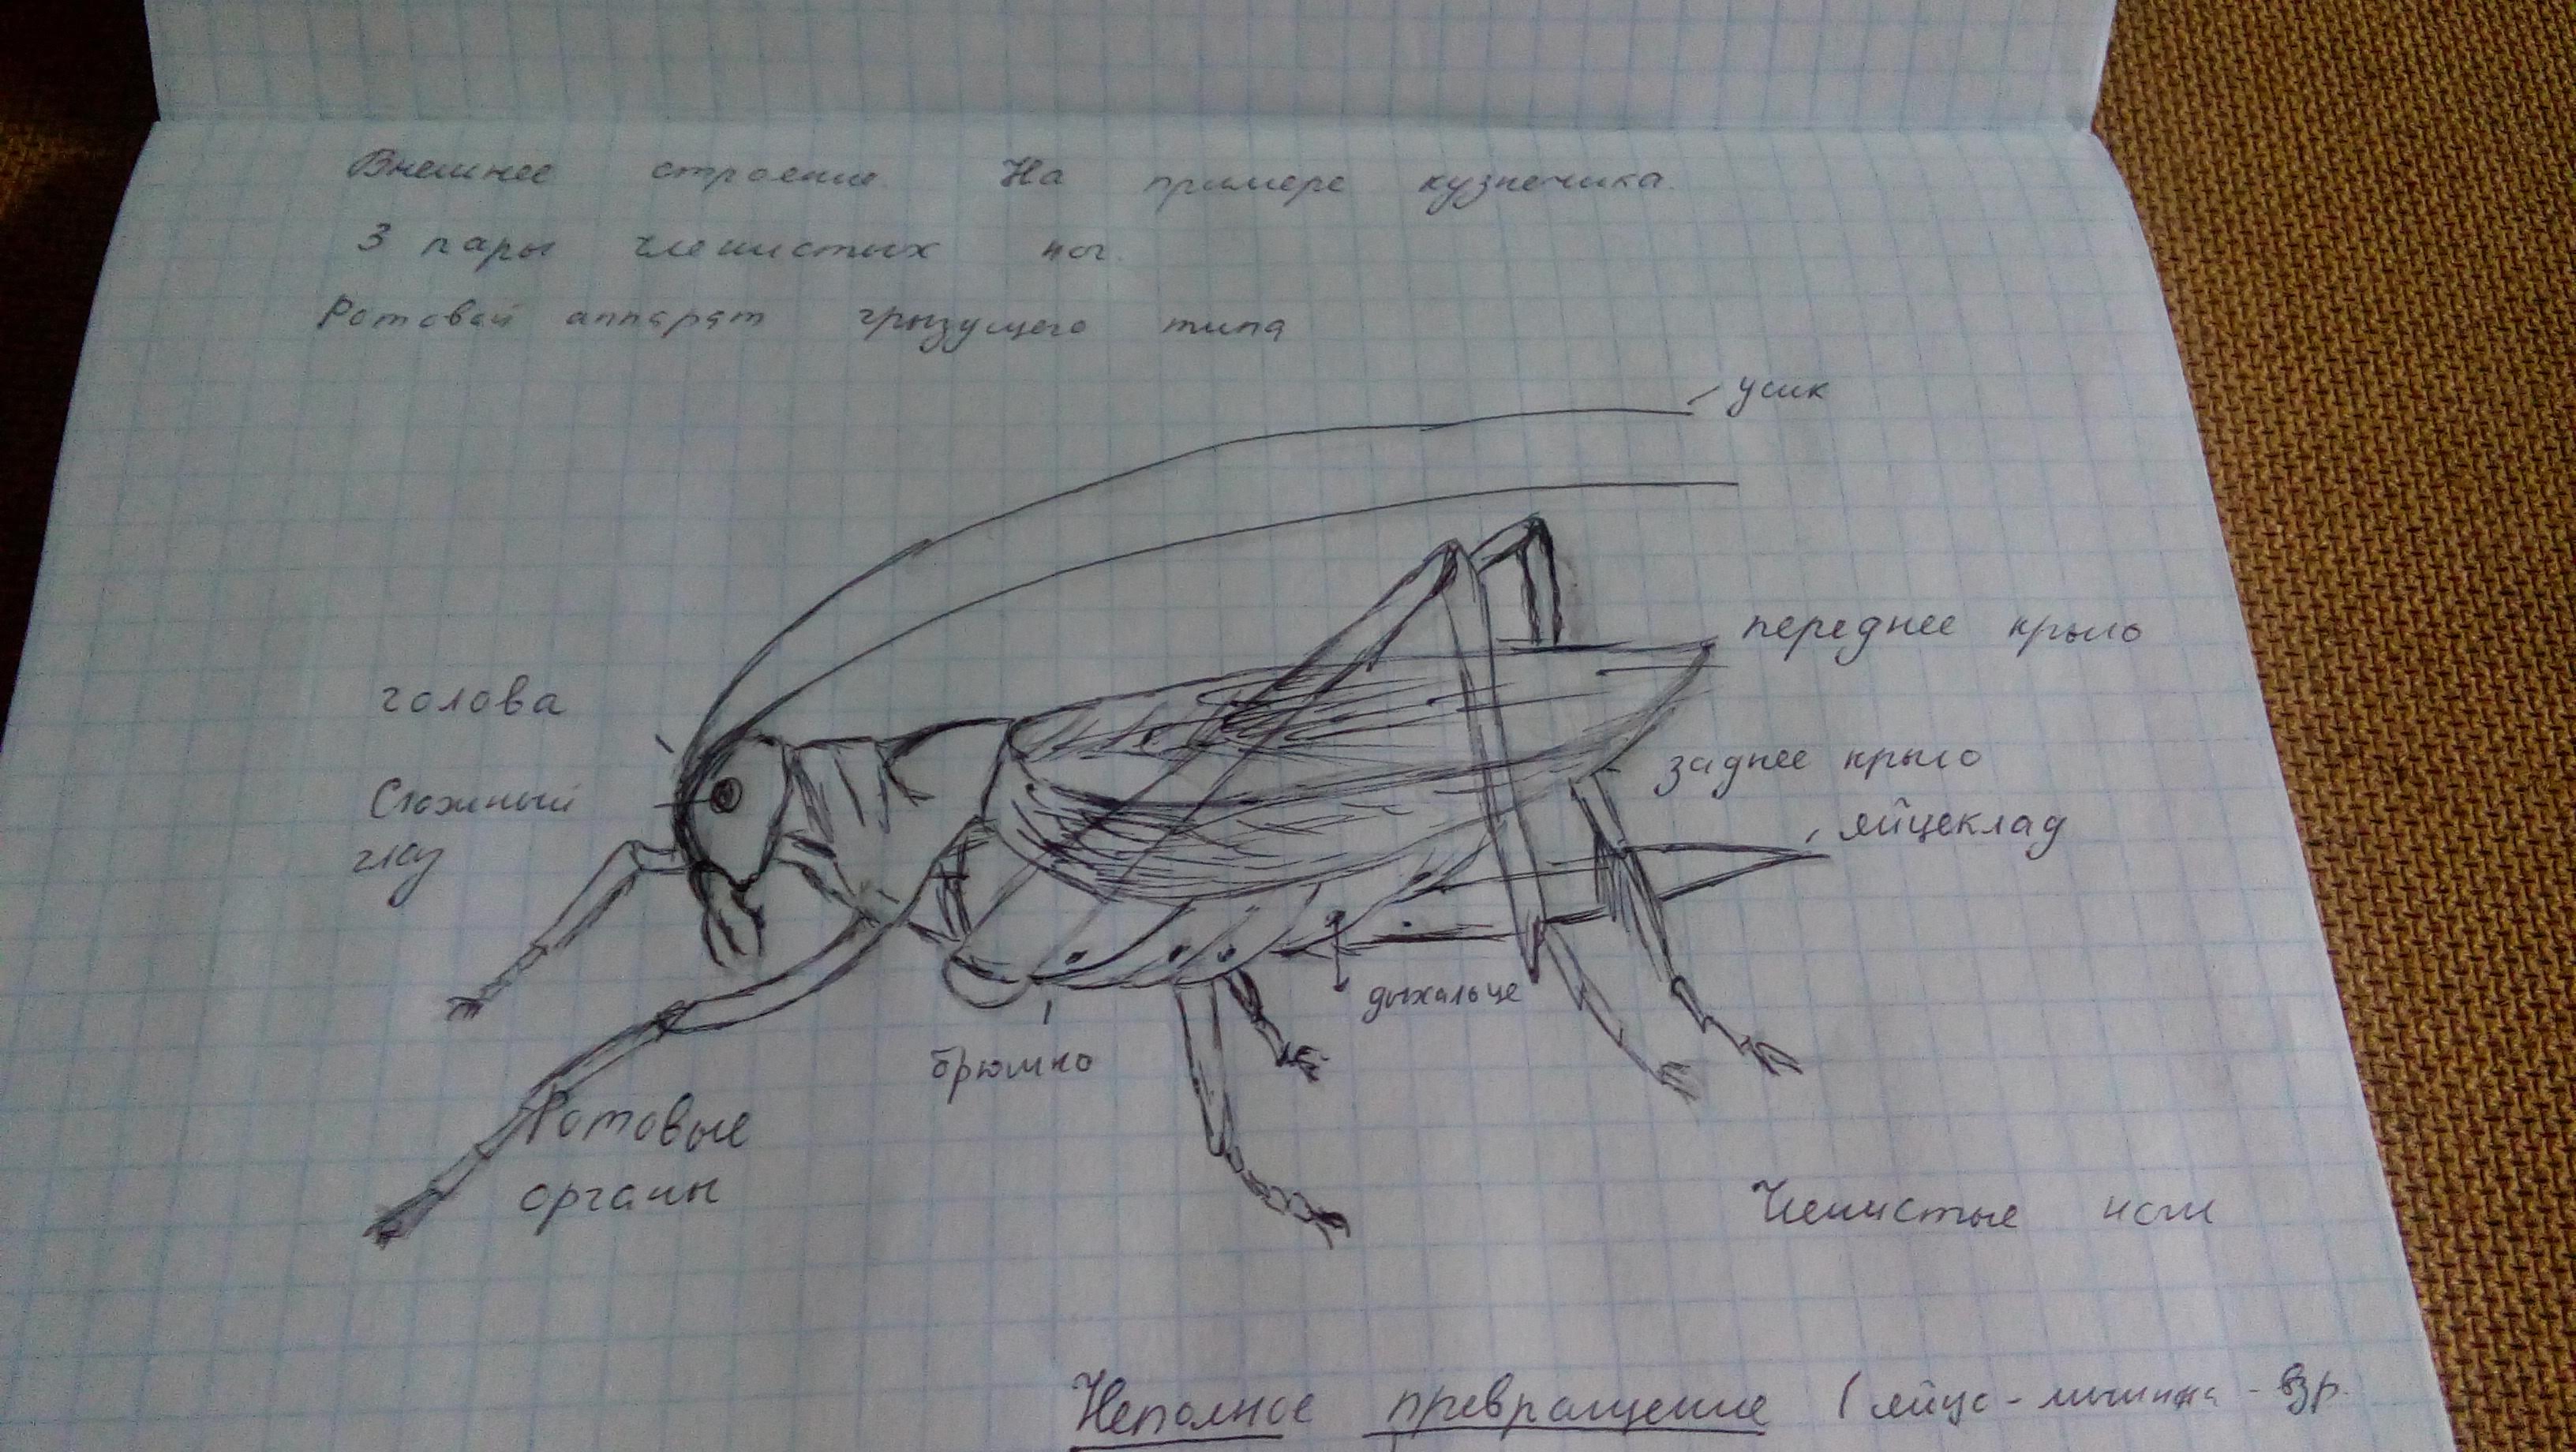 Внешнее строение. На примере кузнечика.
3 пары членистых ног.
Ротовой аппарат грызущего типа
усик
переднее крыло
голова
заднее крыло
Сложный
яйцеклад
глаз
дыхальце
брюшко
Ротовые
органы
Членистые ноги
Неполное превращение (яйцо - личинка - взр.